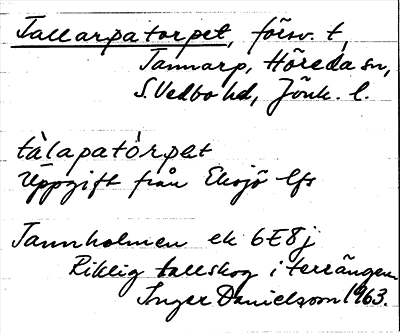 Tallarpatorpet, försv. t,
Tannarp, Höreda sn,
S. Vedbo hd, Jönk. l.
tàlapatòrpet
Uppgift från Eksjö lfs
Tannholmen ek 6E8j
Riklig tallskog i terrängen
Inger Danielsson 1963.